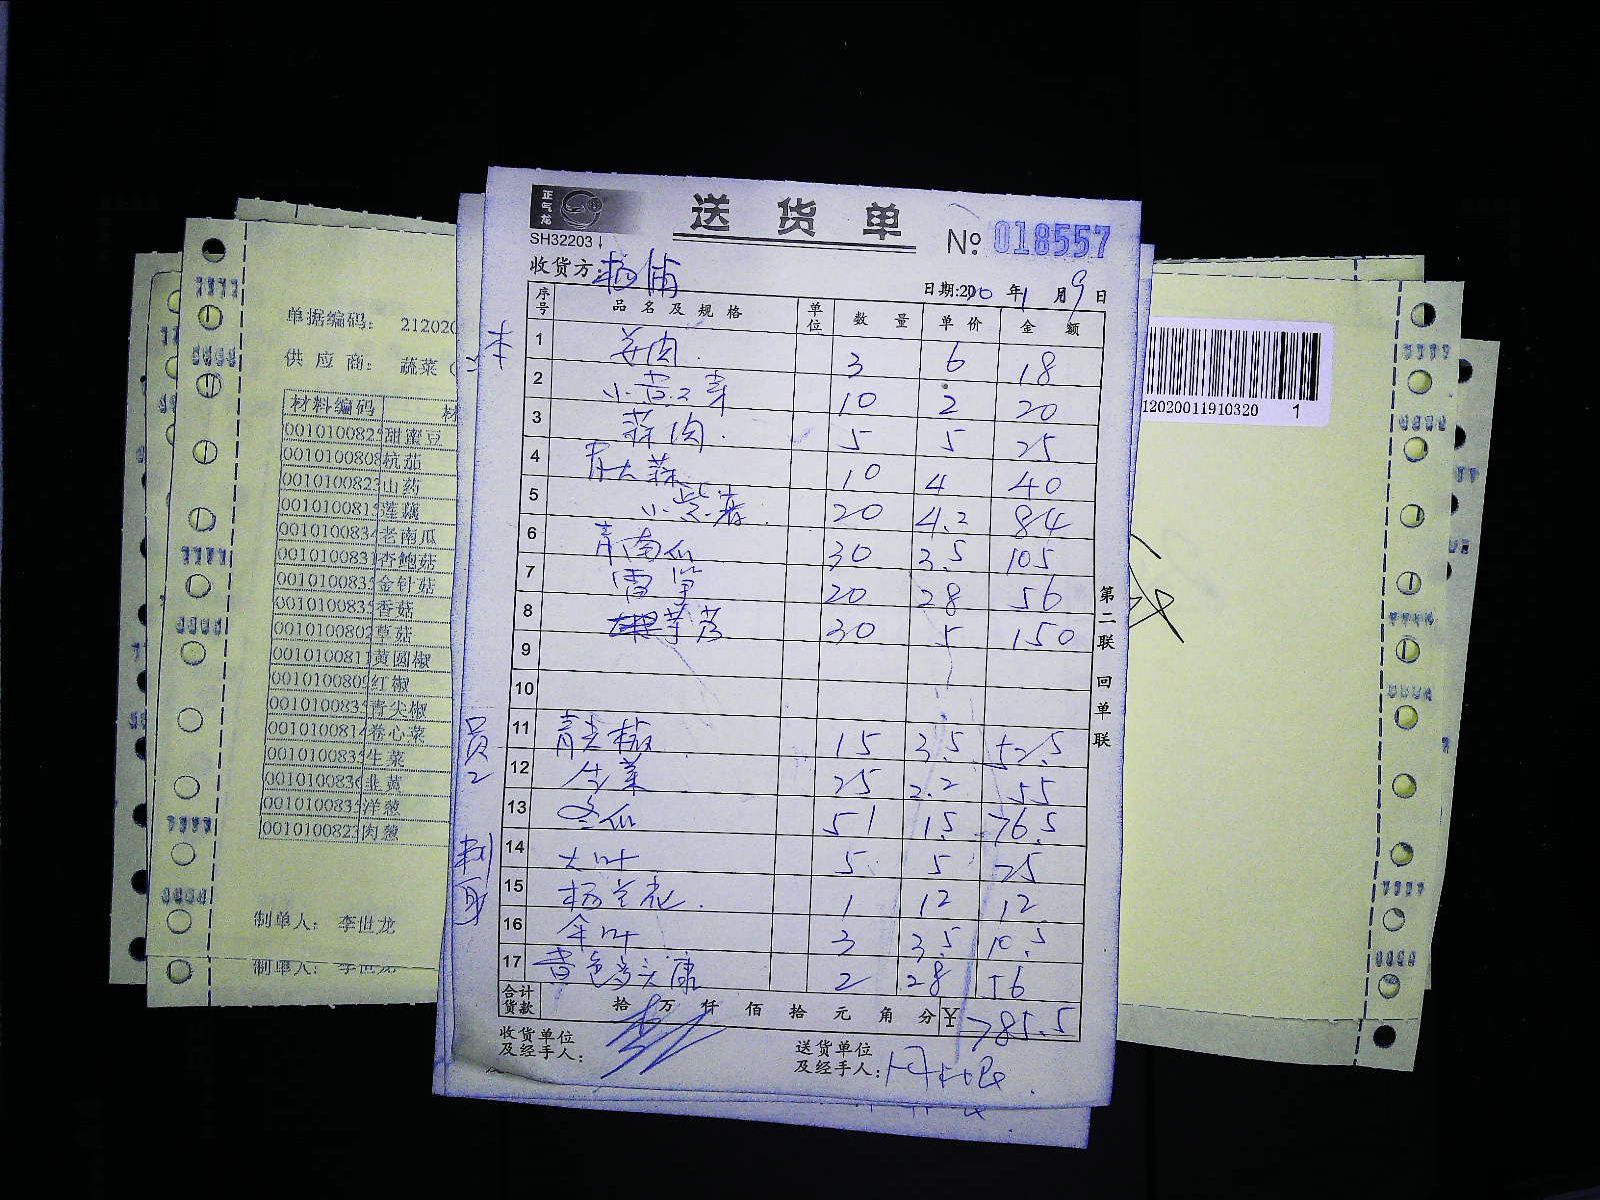 正气龙
送货单
SH32203
№ 018557
收货方: 杨浦
日期:2020年1月9日
序号 品名及规格 单位 数量 单价 金额
1 姜肉 3 6 18
2 10 2 20
3 蒜肉 5 5 25
4 青大蒜 10 4 40
5 小紫薯 20 4.2 84
6 青南瓜 30 3.5 105
7 雷笋 20 28 56
8 30 5 150
9
10
11 青尖椒 15 3.5 52.5
12 生菜 25 2.2 55
13 冬瓜 51 1.5 76.5
14 大叶 5 5 25
15 杨兰花 1 12 12
16 伞叶 3 3.5 10.5
17 2 28 56
合计货款 拾 万 仟 佰 拾 元 角 分 ¥ 785.5
收货单位及经手人:
送货单位及经手人:
第二联 回单联
员2
单据编码: 212020
供应商: 蔬菜 (
材料编码 材
0010100825 甜蜜豆
0010100808 杭茄
0010100823 山药
0010100815 莲藕
0010100834 老南瓜
0010100831 杏鲍菇
0010100835 金针菇
0010100835 香菇
0010100802 草菇
0010100811 黄圆椒
0010100809 红椒
0010100835 青尖椒
0010100814 卷心菜
0010100835 生菜
0010100836 韭黄
0010100835 洋葱
0010100823 肉葱
制单人: 李世龙
制单人: 李世龙
12020011910320 1